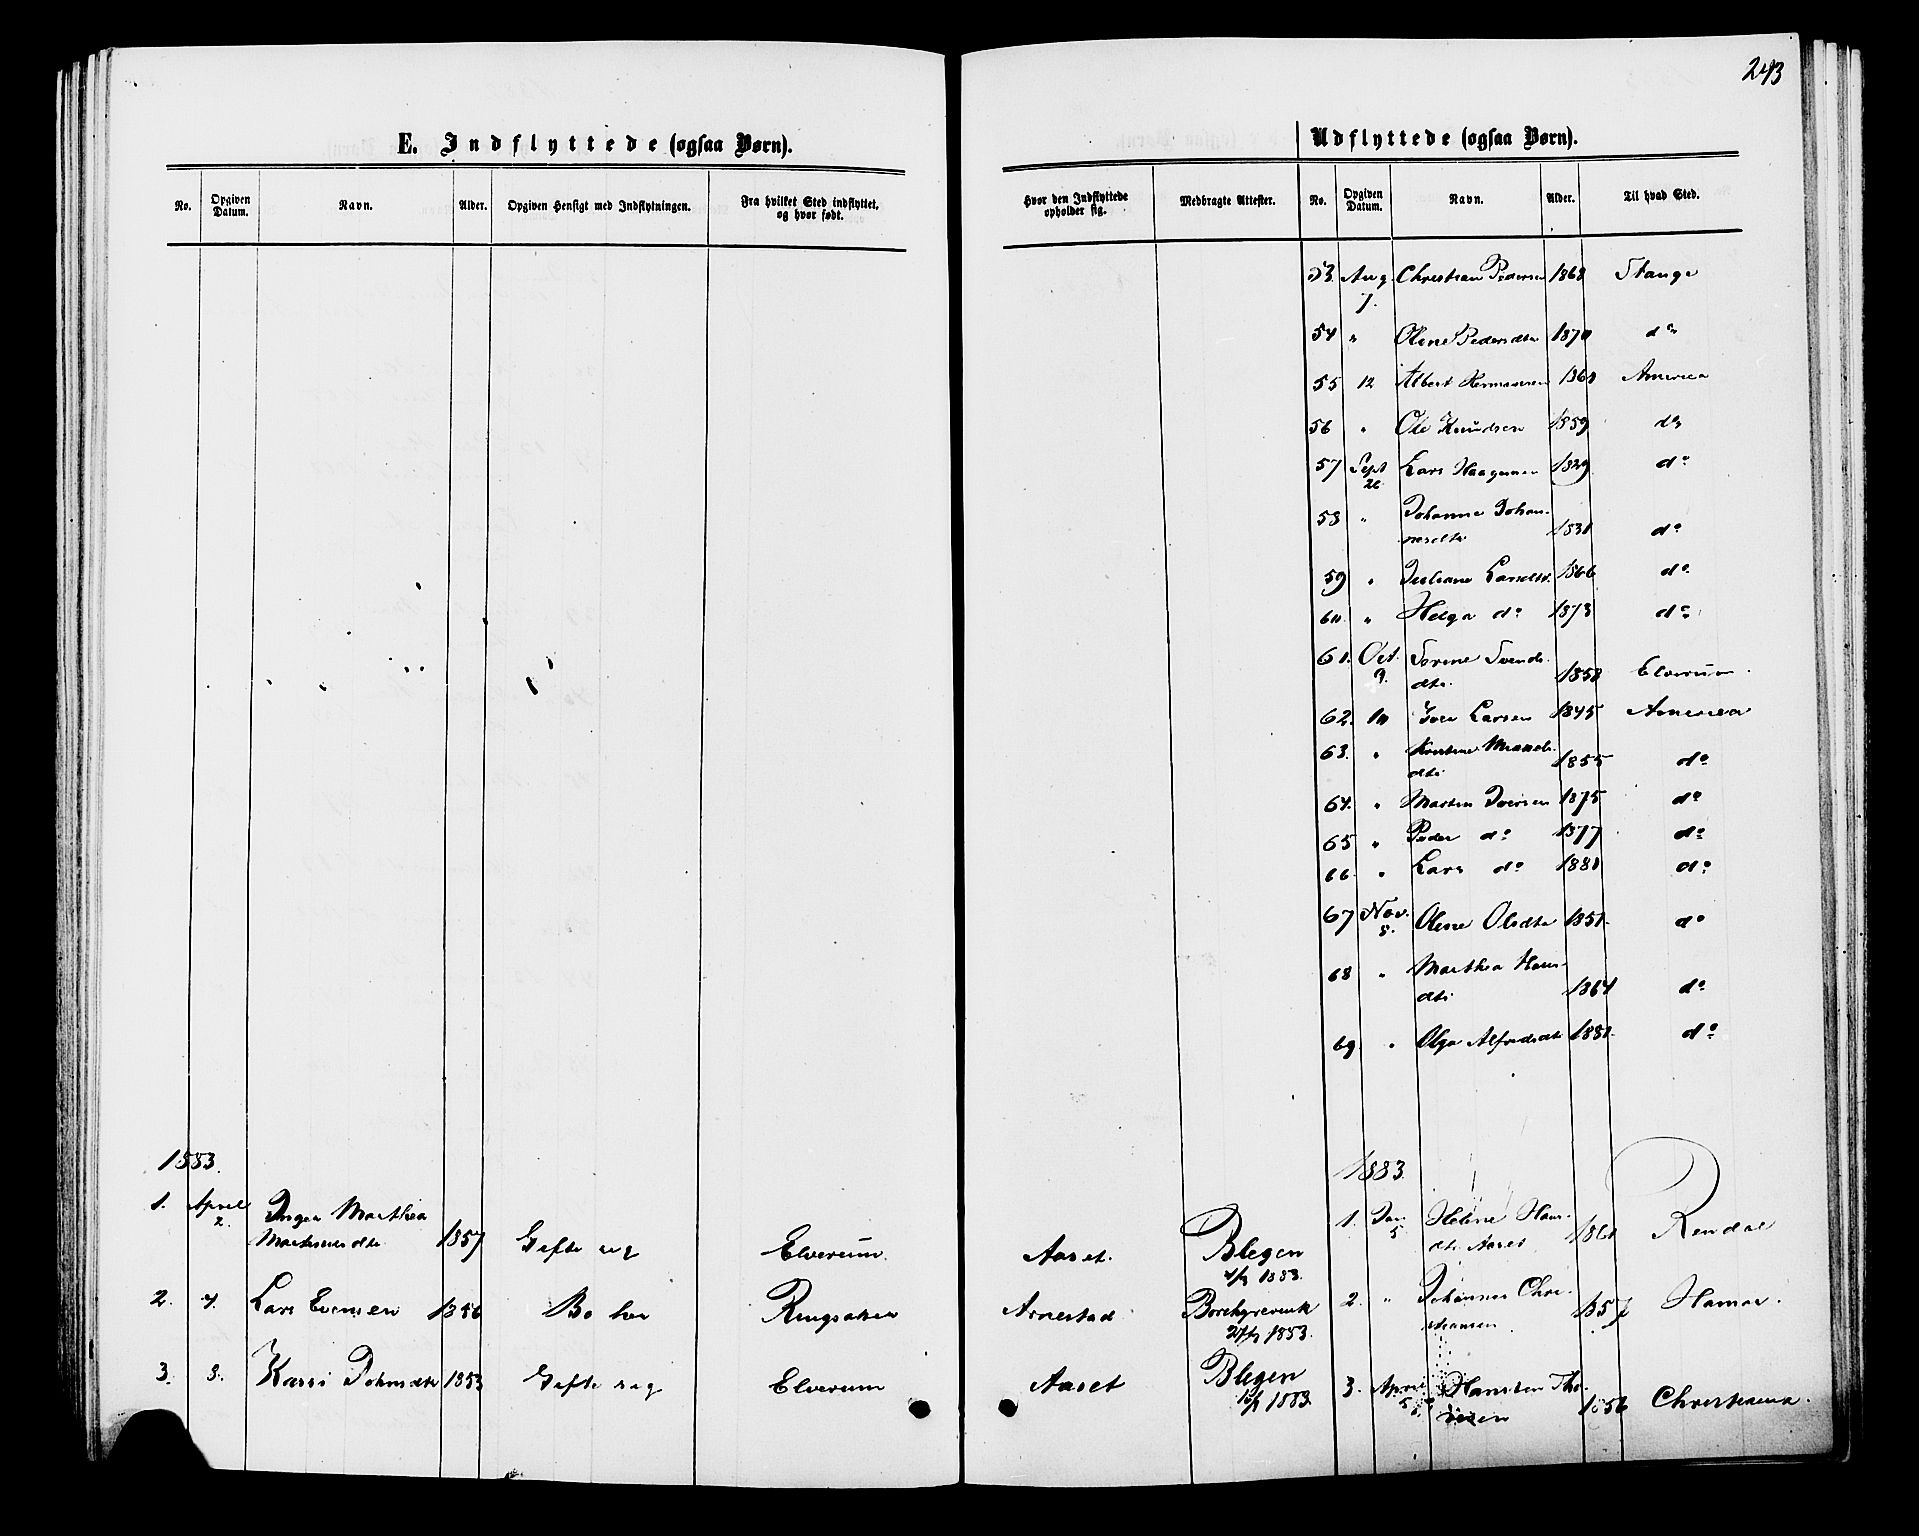 243
E. Indflyttede (ogsaa Børn).
Udflyttede (ogsaa Børn).
No. Opgiven Datum. Navn. Alder. Opgiven Hensigt med Indflytningen. Fra hvilket Sted indflyttet, og hvor født. Hvor den Indflyttede opholder sig. Medbragte Attester. No. Opgiven Datum. Navn. Alder. Til hvad Sted.
53. Aug 7. Christian Pedersen 1868 Stange
54 " Oline Pedersdtr 1870 do
55 12 Albert Hermansen America
56 " Ole Knudsen 1859 do
57 Sept 26 Lars Haagensen 1829 do
58 " Johanne Johan-
nesdtr do
59 " Juliane Larsdtr. 1866 do
60. " Helga do 1873 do
61. Oct. 9. Svends-
dtr. 1858 Elverum.
62. 10 Iver Larsen 1845 America
63. "
dtr 1855 do
64. " Martin Iversen 1875 do
65 " Peder do 1877 do
66. " Lars do 1880 do
67 Nov. 8. Oline Olsdtr 1851. do
68 " Marthea Hans-
dtr 1864 do
69. " Olga Alfredsdtr 1881. do
1883.
1883.
1. April 2. Inger Marthea
Martinusdtr 1857 Gifte sig Elverum. Aaset. Blegen
1883.
2. 4. Lars Evensen 1856 Bo her Ringsaker Arnestad
1883.
3. 8. Kari Johnsdtr 1853 Gifte sig Elverum Aaset Blegen
1883.
1. Jan 5 Helene Hans-
dtr. Aaset Rendal
2. " Johannes Chri-
stiansen 1857 Hamar.
3. April 5 Hansten Tho-
resen 1856 Christiania.